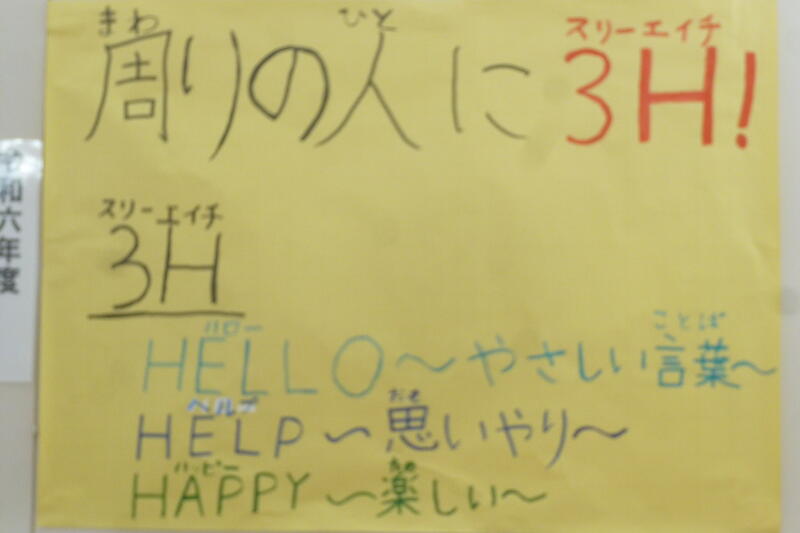 まわ ひと スリーエイチ
周りの人に 3H!
スリーエイチ
3H
ハロー ことば
HELLO～やさしい言葉～
ヘルプ おも
HELP～思いやり～
ハッピー たの
HAPPY～楽しい～
令和六年度